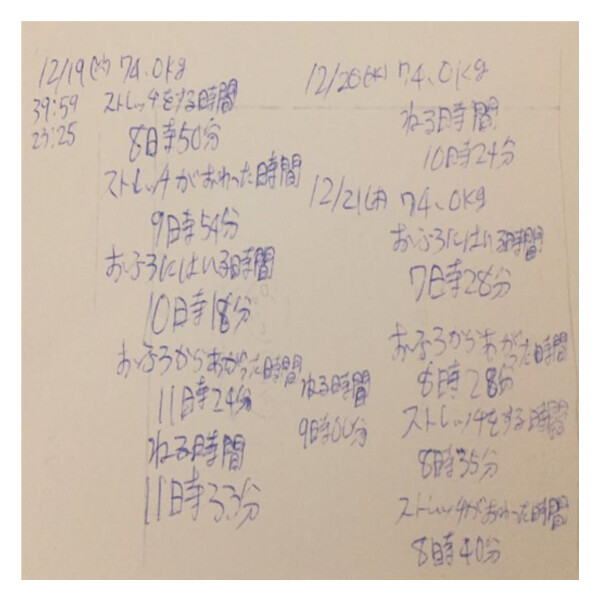 12/19(火) 74.0kg
39:59 ストレッチをする時間
23:25 8時50分
ストレッチがおわった時間
9時54分
おふろにはいる時間
10時18分
おふろからあがった時間
11時24分
ねる時間
11時33分
12/20(水) 74.0kg
ねる時間
10時24分
12/21(木) 74.0kg
おふろにはいる時間
7時28分
おふろからあがった時間
8時28分
ストレッチをする時間
8時35分
ストレッチがおわった時間
8時40分
ねる時間
9時00分